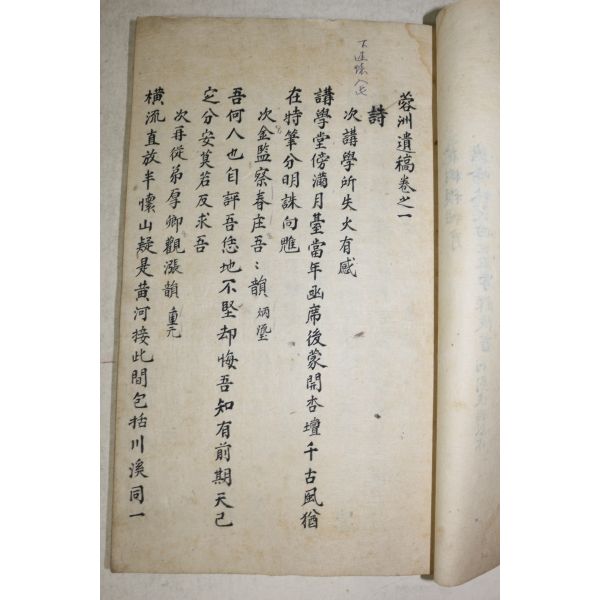 蓉洲遺稿卷之一
詩
次講學所失火有感
講學堂傍滿月臺當年函席後蒙開杏壇千古風猶
在特筆分明誅向雎
次金監察春庄吾〻韻 炳𤅬
吾何人也自評吾恁地不堅却悔吾知有前期天已
定分安莫若反求吾
次再從弟厚卿觀漲韻 重元
橫流直放半懷山疑是黃河接此間包括川溪同一